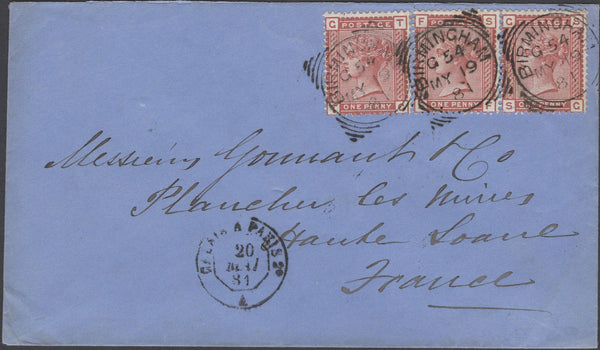 G POSTAGE T
F POSTAGE S
G POSTAGE S
ONE PENNY
ONE PENNY F
S ONE PENNY G
BIRMINGHAM
G 54
MY 19
BIRMINGHAM
G 54
MY 19
81
BIRMINGHAM
G 54
MY
8
Messieurs Gonnant & Co
Plancher les Mines
Haute Soane
France
CALAIS A PARIS
20
MAI
81
A